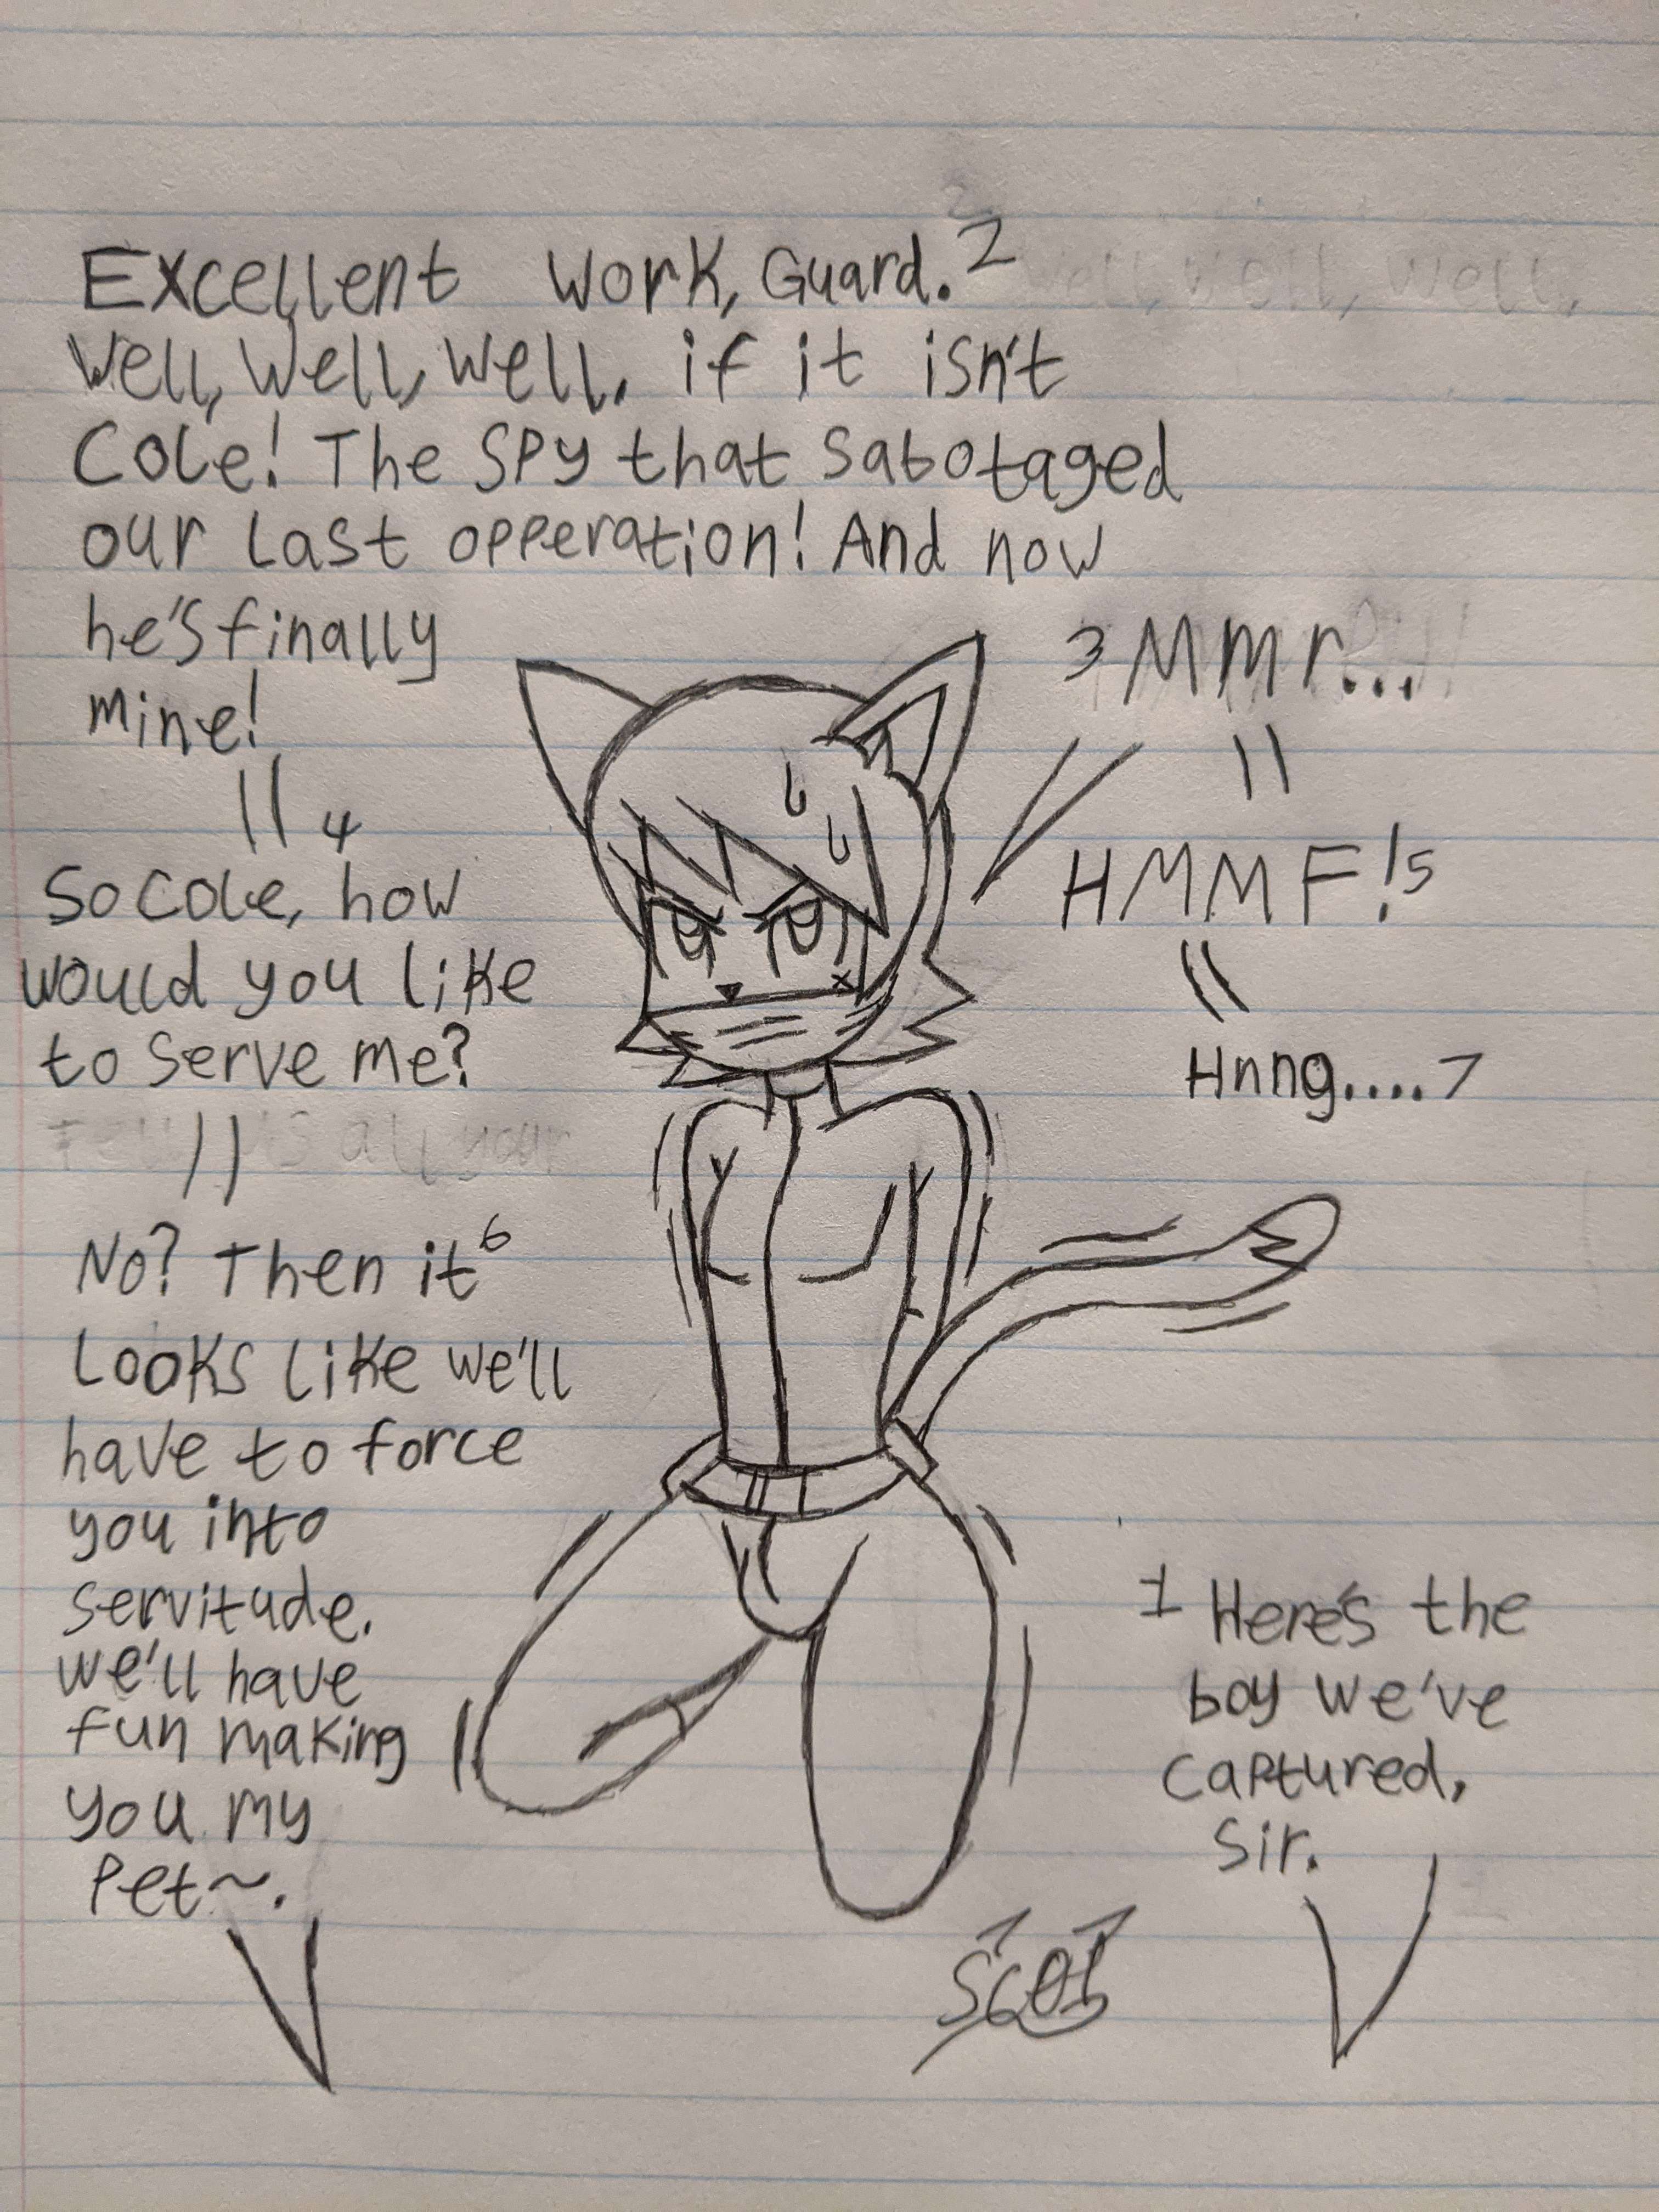 Excellent work, Guard. 2
Well, Well, Well. if it isn't
Cole! The spy that sabotaged
our last opperation! And now
he's finally
mine!
3 Mmr...
4
So Cole, how
would you like
to serve me?
HMMF! 5
Hnng.... 7
No? Then it 6
Looks like we'll
have to force
you into
servitude.
we'll have
fun making
you my
Pet~.
1 Here's the
boy we've
captured,
sir.